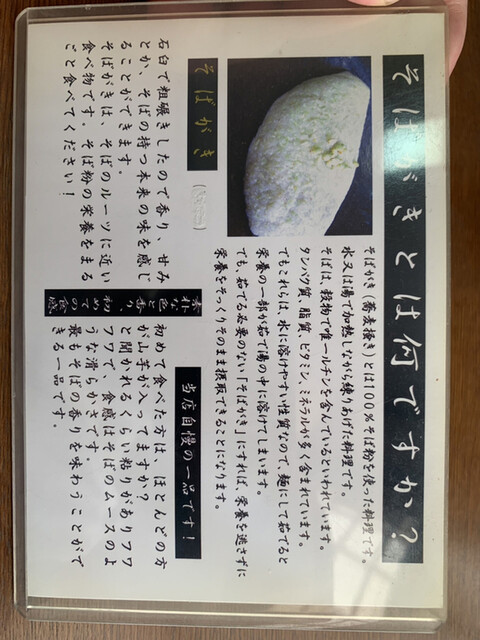 そばがきとは何ですか？
そばがき（蕎麦掻き）とは100％そば粉を使った料理です。
水又は湯で加熱しながら練りあげた料理です。
そばは、穀物で唯一ルチンを含んでいるといわれています。
タンパク質、脂質、ビタミン、ミネラルが多く含まれています。
でもこれらは、水に溶けやすい性質なので、麺にして茹でると
栄養の一部が茹で湯の中に溶けてしまいます。
でも、茹でる必要のない「そばがき」にすれば、栄養を逃さずに
栄養をそっくりそのまま摂取できることになります。
そばがき
石臼で粗碾きしたので香り、甘み
とか、そばの持つ本来の味を感じ
ることができます。
そばがきは、そばのルーツに近い
食べ物です。そば粉の栄養をまる
ごと食べてください！
当店自慢の一品です！
素朴な色と香り、初めての食感
初めて食べた方は、ほとんどの方
が山芋が入ってますか？
と聞かれるくらい粘りがありフワ
フワで、食感はそばのムースのよ
うな滑らかさです。
最もそばの香りを味わうことがで
きる一品です。